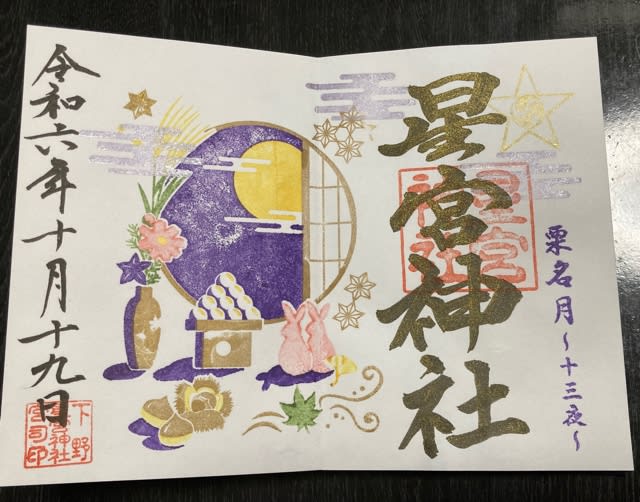 星宮神社
栗名月〜十三夜〜
星宮
神社
令和六年十月十九日
下野
星宮神社
宮司印